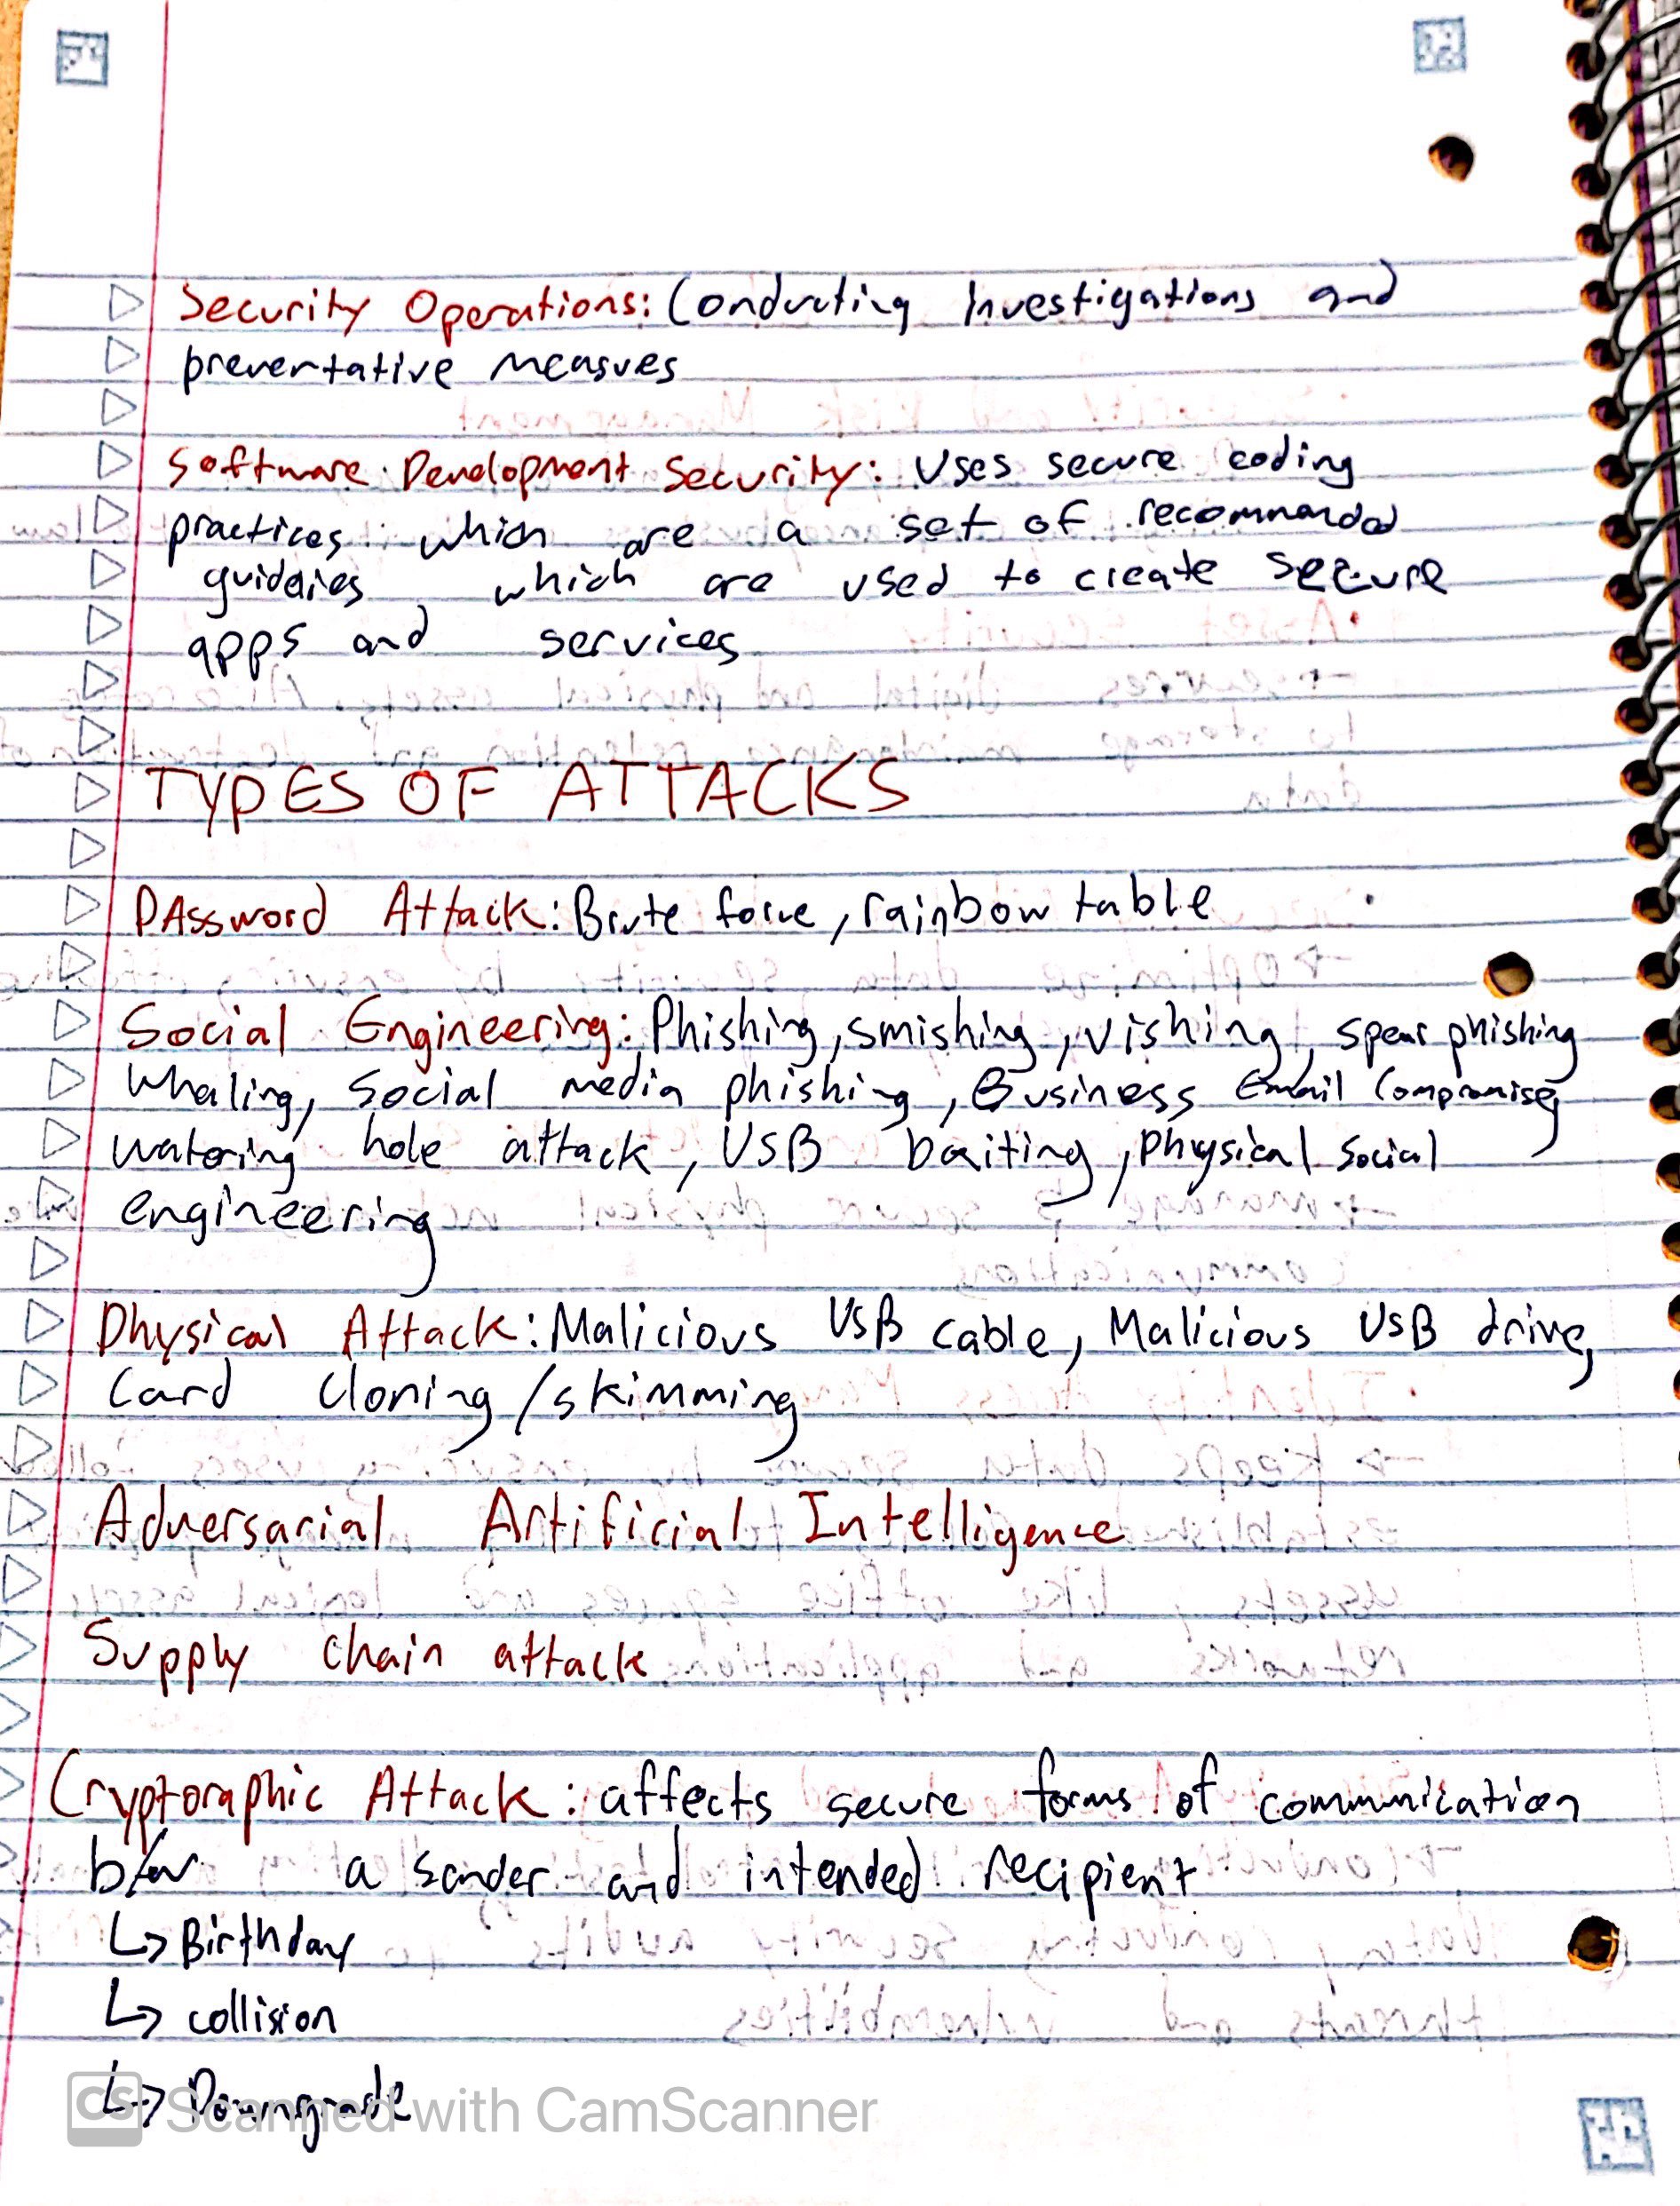 Security Operations: Conducting Investigations and
preventative measures
Software Development Security: Uses secure coding
practices which are a set of recommended
which are used to create secure
apps and services
TYPES OF ATTACKS
PAssword Attack: Brute force, rainbow table
Social Engineering: Phishing, smishing, vishing, spear phishing
Whaling, Social media phishing, Business Email Compromise,
watering hole attack, USB baiting, physical social
engineering
Physical Attack: Malicious USB cable, Malicious USB drive,
Card cloning/skimming
Adversarial Artificial Intelligence
Supply chain attack
Cryptoraphic Attack: affects secure forms of communication
b/w a sender and intended recipient
↳ Birthday
↳ collision
↳ Downgrade
CS Scanned with CamScanner